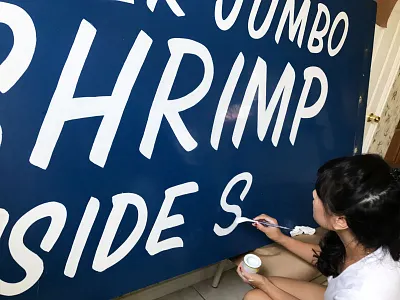 JUMBO
SHRIMP
SIDE S